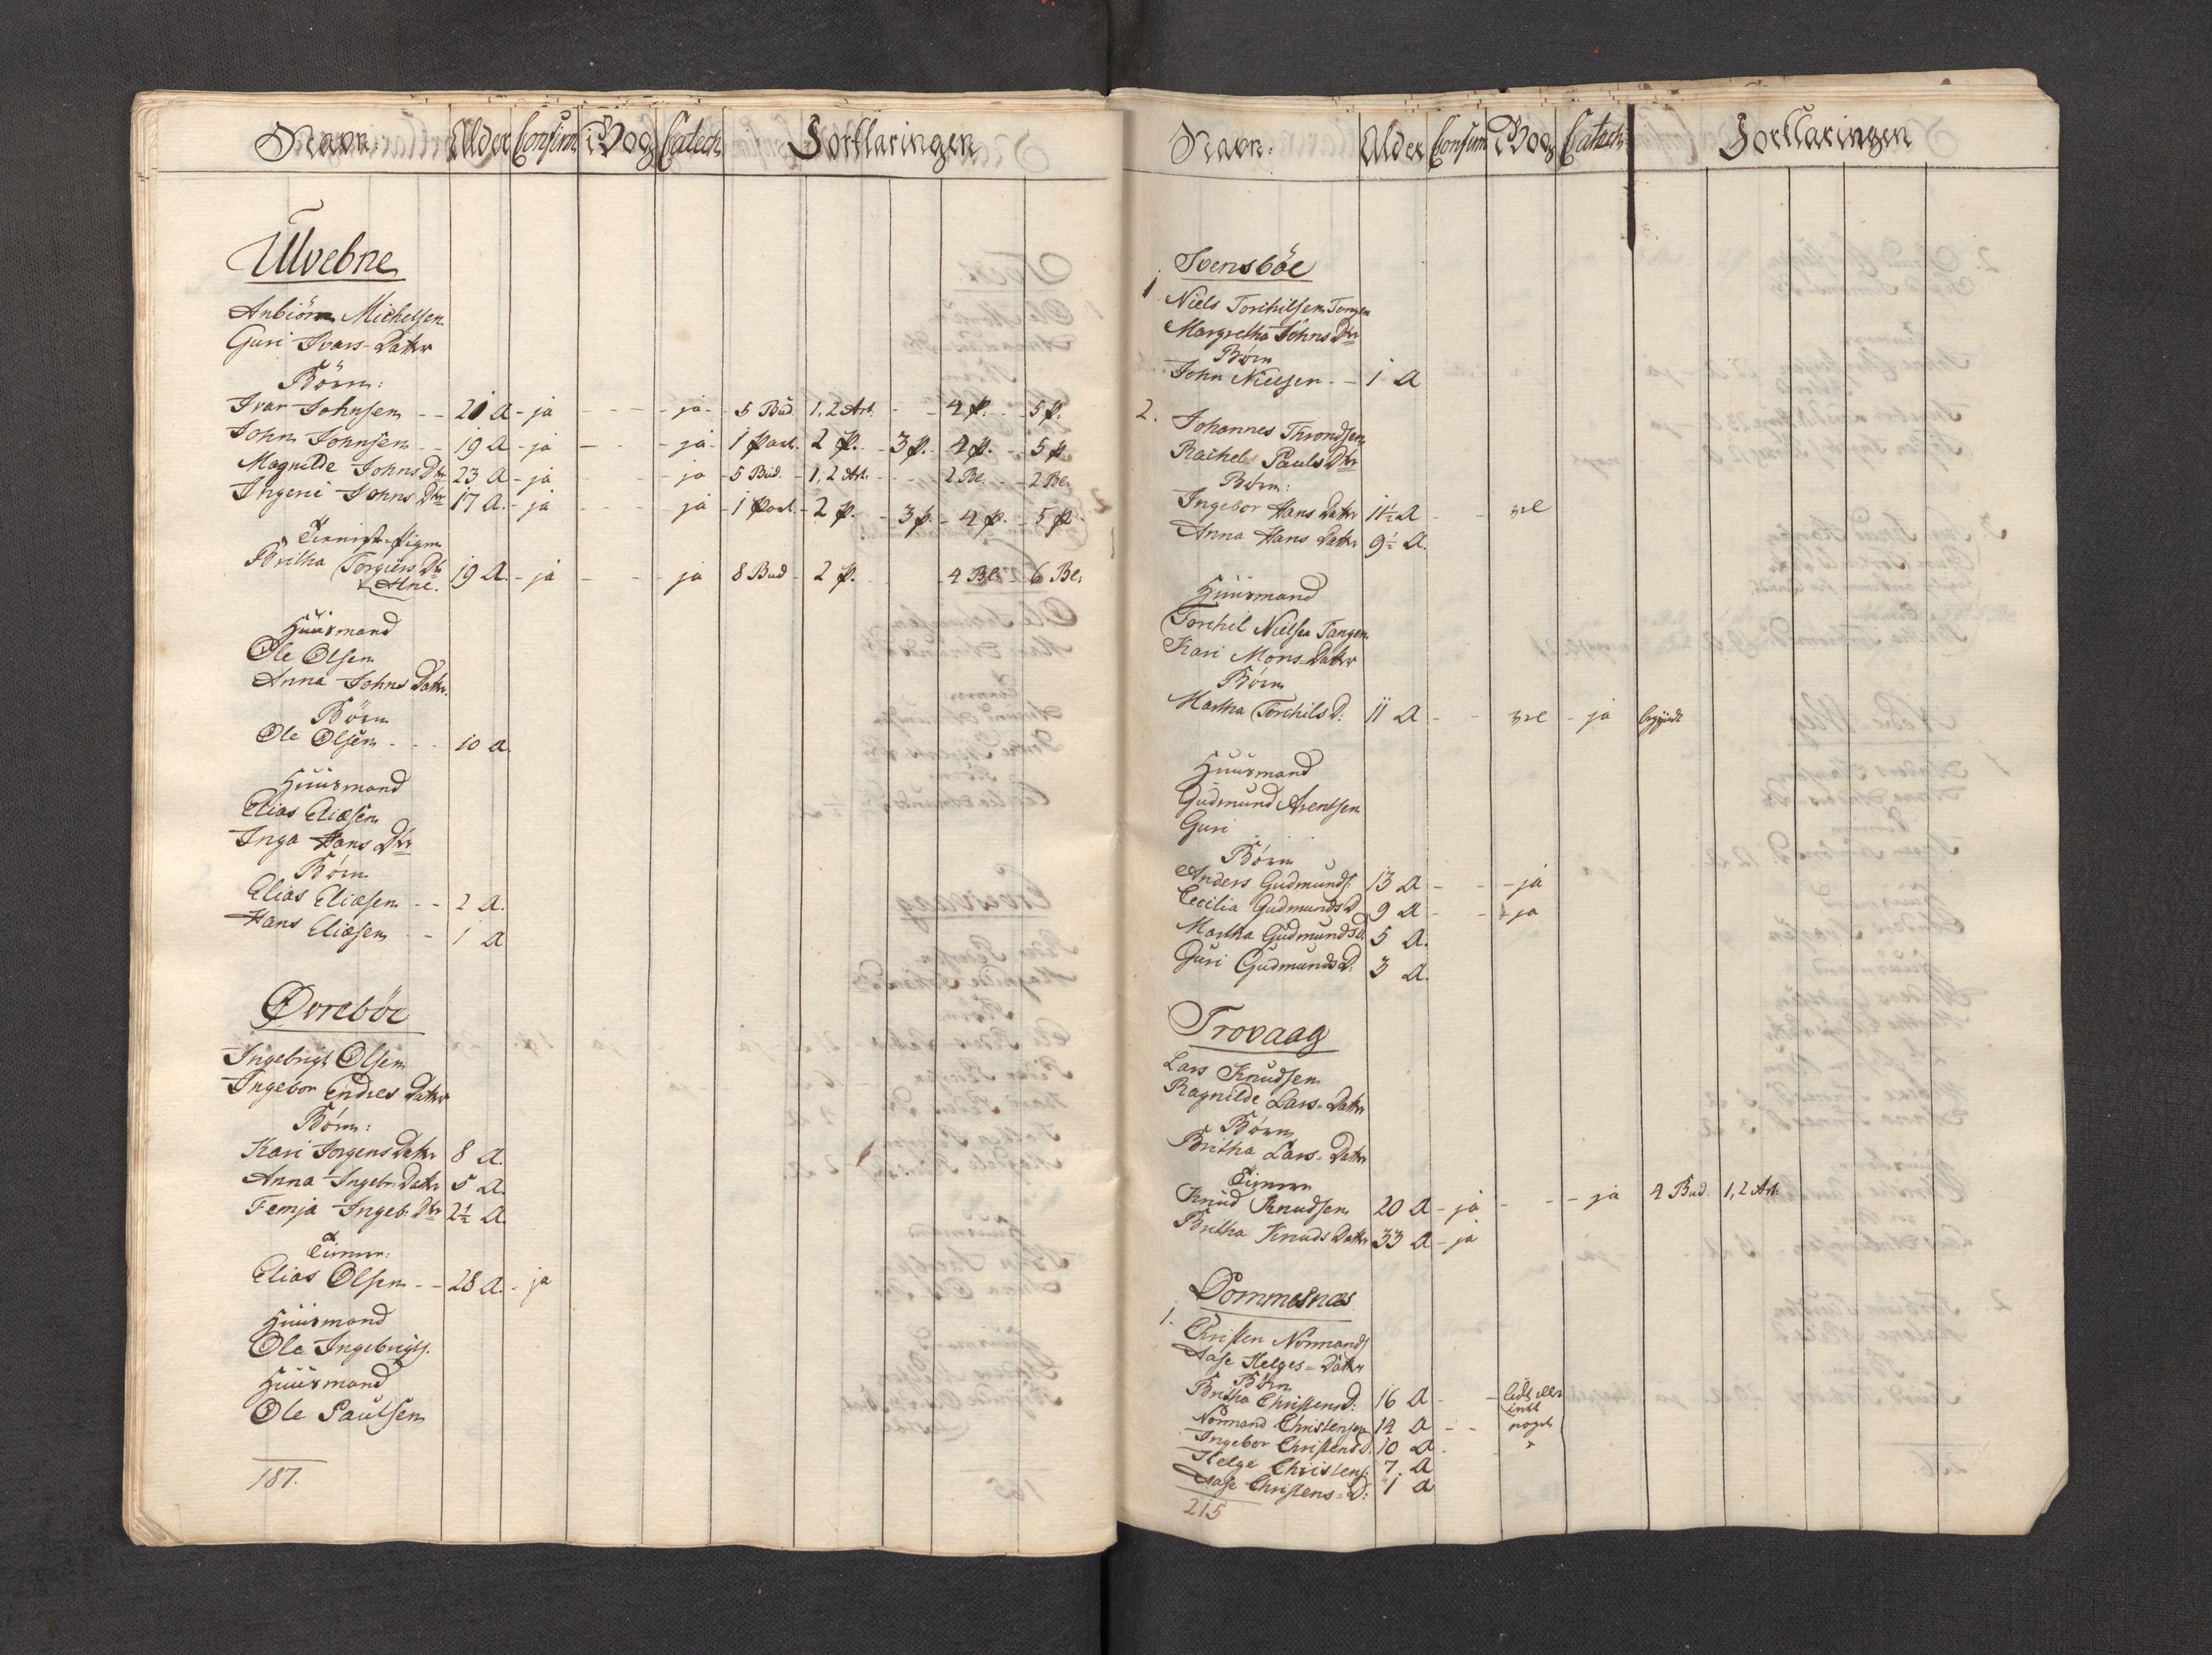 Navn: Alder Confirm i Bog Catech Forklaringen
Ulvebne
Anbiörn Michelsen
Guri Ivars Datter
Börn:
Ivar Johnsen - - 21 A - ja - - - ja - 5 Bud. 1, 2 Art. - - 4 p. - 5 p.
John Johnsen - 19 A - ja - - - ja - 1 Part. 2 p. - 3 p. 4 p. - 5 p
Magnilde Johns Dtr 23 A - ja - - - ja - 5 Bud. - 1, 2 Art. - - 2 Bl. - 2 Bl.
Ingeni Johns Dtr 17 A. - ja - - - ja - 1 Part. - 2 p. - 3 p. - 4 p. - 5 p
Tienist-Pigen
Britha Torgiers Dtr 19 A. - ja - - - ja 8 Bud - 2 p. - 4 Bl. - 6 Bl.
Huusmand
Ole Olsen
Anna Johns Datter.
Börn
Ole Olsen - - - 10 A.
Huusmand
Elias Eliæsen
Inga Hans Dtr
Börn
Elias Eliæsen - - 2 A.
Hans Eliæsen - - 1 A
Øvreböe
Ingebrigt Olsen
Ingebor Endres Datter
Börn:
Kari Jörgens Datter 8 A.
Anna Ingebr. Datter 5 A.
Femja Ingeb. Dtr 2½ A.
Tienere:
Elias Olsen - - 28 A. - ja
Huusmand
Ole Ingebrigts.
Huusmand
Ole Paulsen
187.
Navn: Alder Confirm i Bog Catech: Forklaringen
Svensböe
1. Niels Torchilsen Tangen
Margretha Johns Dtr
Börn
John Nielsen - - 1 A
2. Johannes Throndsen
Rachel Pauls Dtr
Börn:
Ingebor Hans Datter 11½ A - - vel
Anna Hans Datter 9½ A.
Huusmand
Torchil Nielsen Tangen
Kari Mons-Datter
Börn
Martha Torchils D: 11 A - - vel - ja begyndt
Huusmand
Gudmund Arentsen
Guri
Börn
Anders Gudmunds: 13 A - - - ja
Cecilia Gudmunds D 9 A - - - ja
Martha Gudmunds D. 5 A.
Guri Gudmunds D: 3 A.
Trovaag
Lars Knudsen
Ragnilde Lars-Datter
Börn
Britha Lars-Datter
Tienere
Knud Knudsen 20 A - ja - - - ja 4 Bud. 1, 2 Art.
Britha Knuds Datter 33 A - ja
Dommesnæs
1. Christen Normands
Aase Helges-Datter
Börn
Britha Christens D: 16 A - - lidt eller
intet
Normand Christensen 14 A - - noget
Ingebor Christens D. 10 A.
Helge Christens: 7. A
Aase Christens-D: 1 A
215